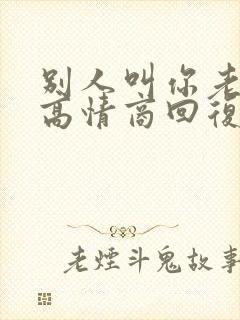 别人叫你老
高情商回復
老煙斗鬼故事